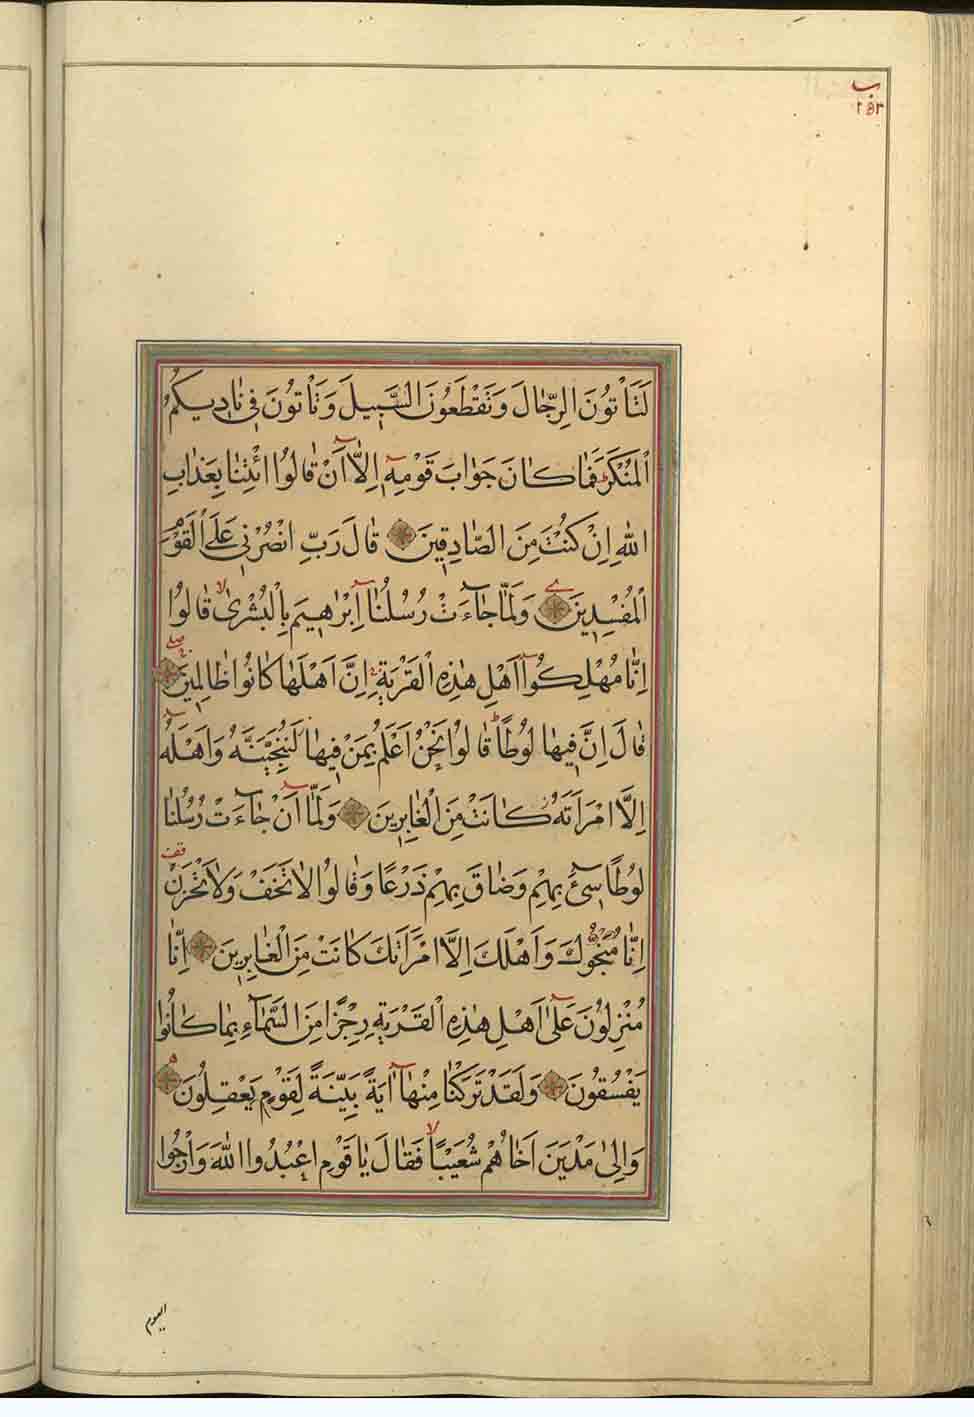 ب
لَتَأْتُونَ الرِّجَالَ وَتَقْطَعُونَ السَّبِيلَ وَتَأْتُونَ فِي نَادِيكُمُ
الْمُنْكَرَ فَمَا كَانَ جَوَابَ قَوْمِهِ إِلَّا أَنْ قَالُوا ائْتِنَا بِعَذَابِ
اللهِ إِنْ كُنْتَ مِنَ الصَّادِقِينَ قَالَ رَبِّ انْصُرْنِي عَلَى الْقَوْمِ
الْمُفْسِدِينَ وَلَمَّا جَاءَتْ رُسُلُنَا إِبْرَاهِيمَ بِالْبُشْرَىٰ قَالُوا
إِنَّا مُهْلِكُوا أَهْلِ هَٰذِهِ الْقَرْيَةِ إِنَّ أَهْلَهَا كَانُوا ظَالِمِينَ
قَالَ إِنَّ فِيهَا لُوطًا قَالُوا نَحْنُ أَعْلَمُ بِمَنْ فِيهَا لَنُنَجِّيَنَّهُ وَأَهْلَهُ
إِلَّا امْرَأَتَهُ كَانَتْ مِنَ الْغَابِرِينَ وَلَمَّا أَنْ جَاءَتْ رُسُلُنَا
لُوطًا سِيءَ بِهِمْ وَضَاقَ بِهِمْ ذَرْعًا وَقَالُوا لَا تَخَفْ وَلَا تَحْزَنْ
إِنَّا مُنَجُّوكَ وَأَهْلَكَ إِلَّا امْرَأَتَكَ كَانَتْ مِنَ الْغَابِرِينَ إِنَّا
مُنْزِلُونَ عَلَىٰ أَهْلِ هَٰذِهِ الْقَرْيَةِ رِجْزًا مِنَ السَّمَاءِ بِمَا كَانُوا
يَفْسُقُونَ وَلَقَدْ تَرَكْنَا مِنْهَا آيَةً بَيِّنَةً لِقَوْمٍ يَعْقِلُونَ
وَإِلَىٰ مَدْيَنَ أَخَاهُمْ شُعَيْبًا فَقَالَ يَا قَوْمِ اعْبُدُوا اللهَ وَارْجُوا
اليوم